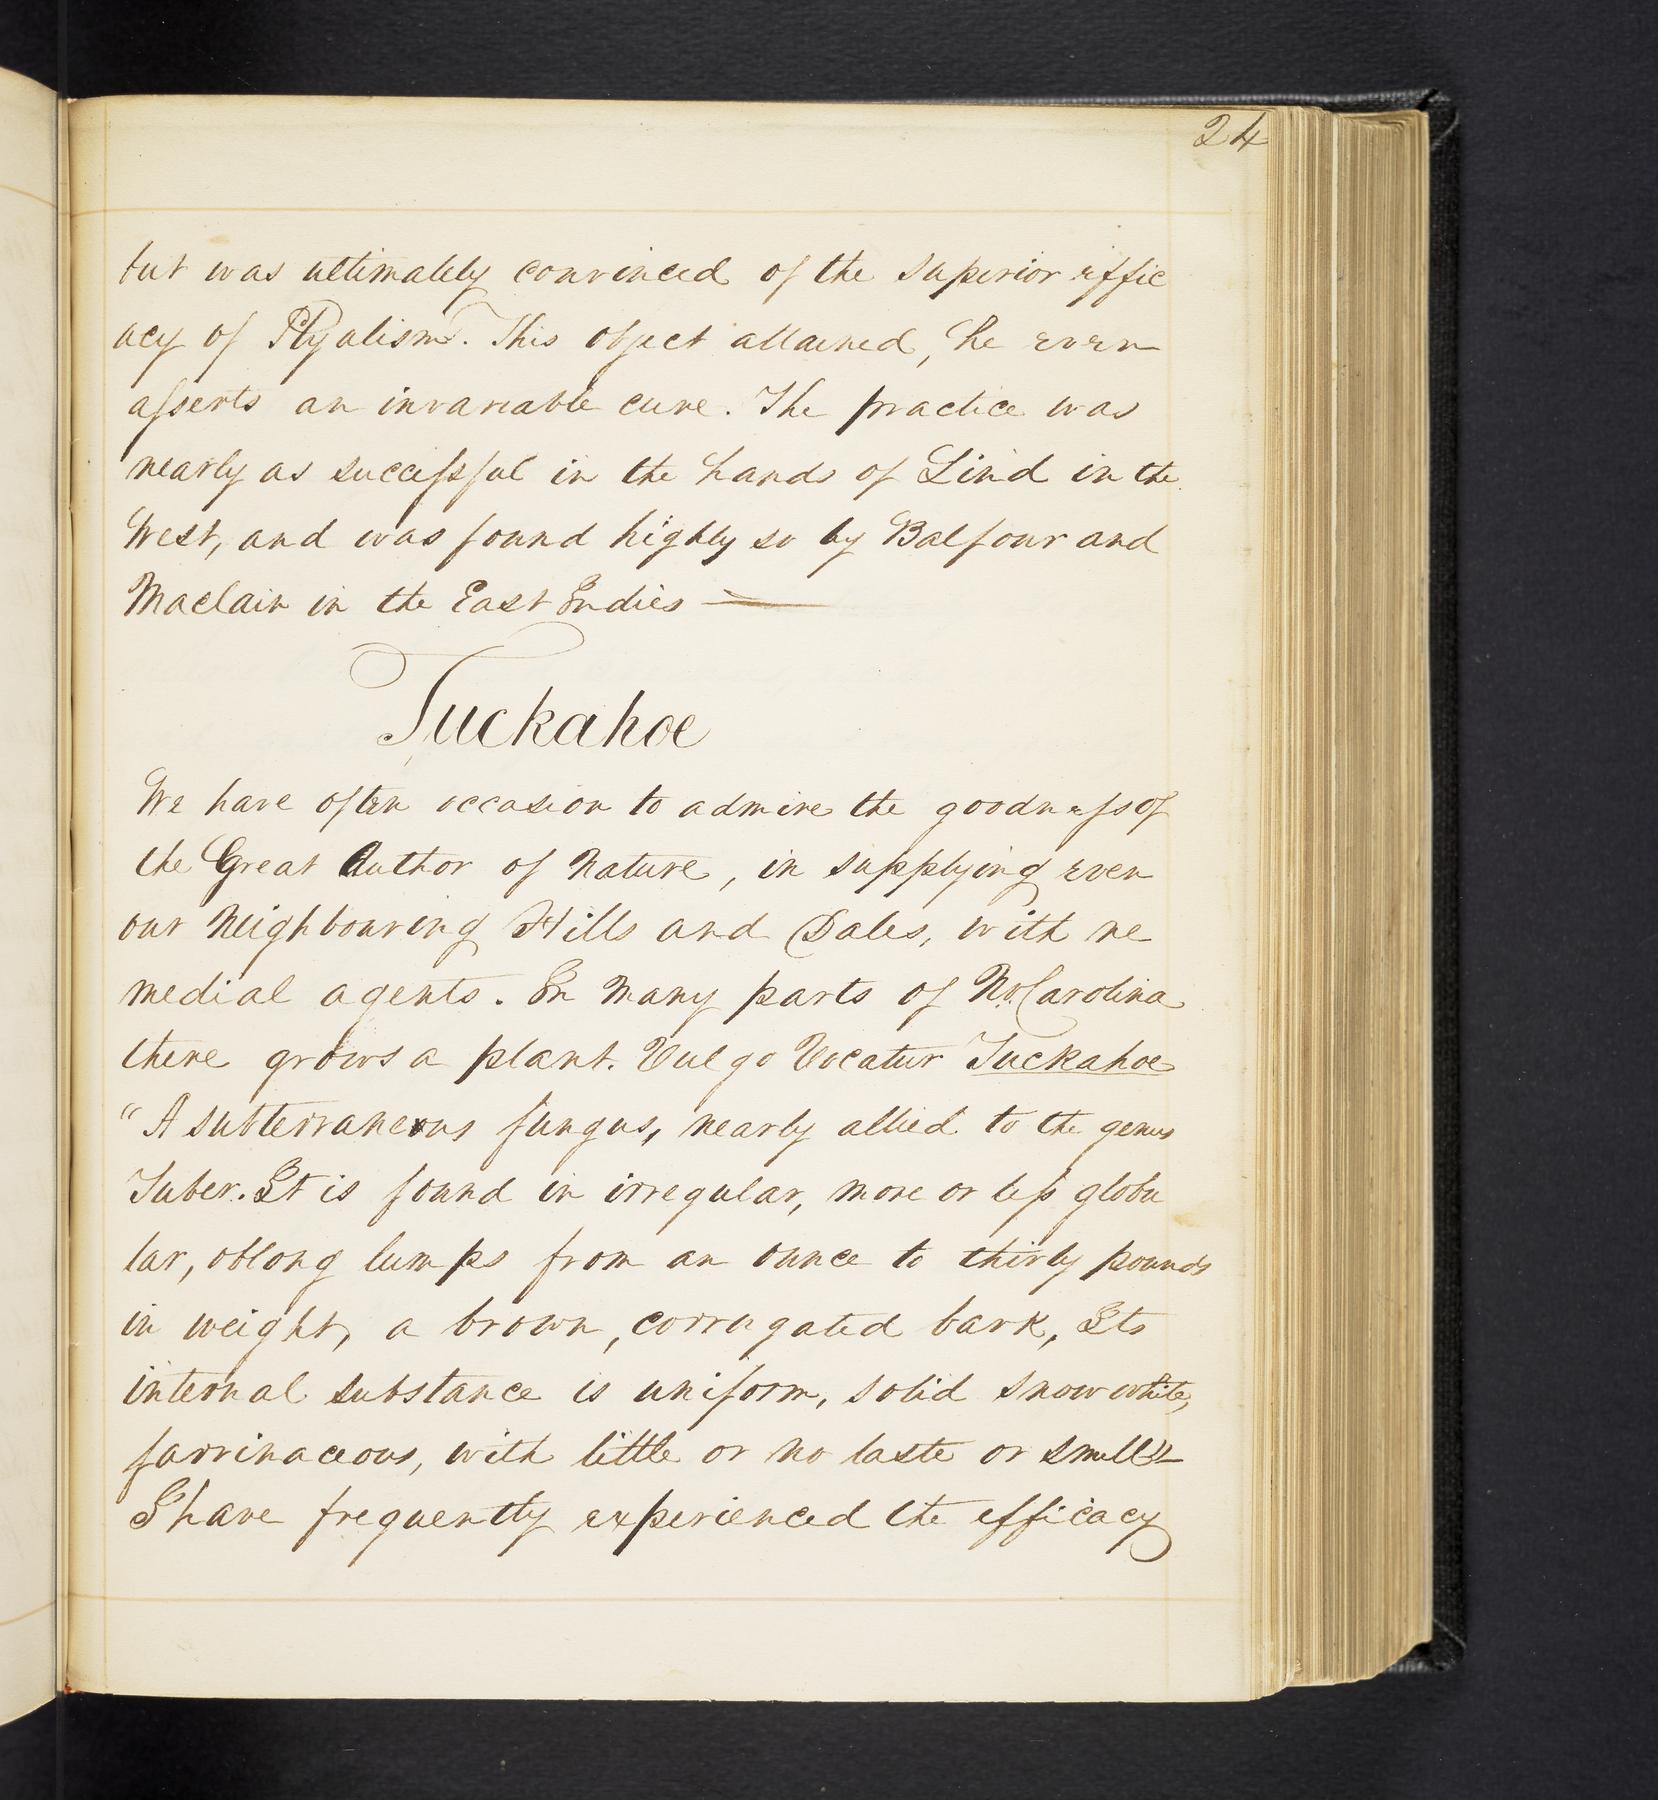 24
but was ultimately convinced of the superior effic
acy of Ptyalism. This object attained, he even
asserts an invariable cure. The practice was
nearly as successful in the hands of Lind in the
West, and was found highly so by Balfour and
Maclair in the East Indies —
Tuckahoe
We have often occasion to admire the goodness of
the Great Author of Nature, in supplying even
our Neighbouring Hills and Dales, with re
medial agents. In Many parts of No. Carolina
there grows a plant. Vulgo Vocatur Tuckahoe
"A subterraneous fungus, nearly allied to the genus
Tuber. It is found in irregular, more or less globu
lar, oblong lumps from an ounce to thirty pounds
in weight, a brown, corrugated bark, Its
internal substance is uniform, solid snow white,
farrinaceous, with little or no taste or smell"—
I have frequently experienced the efficacy